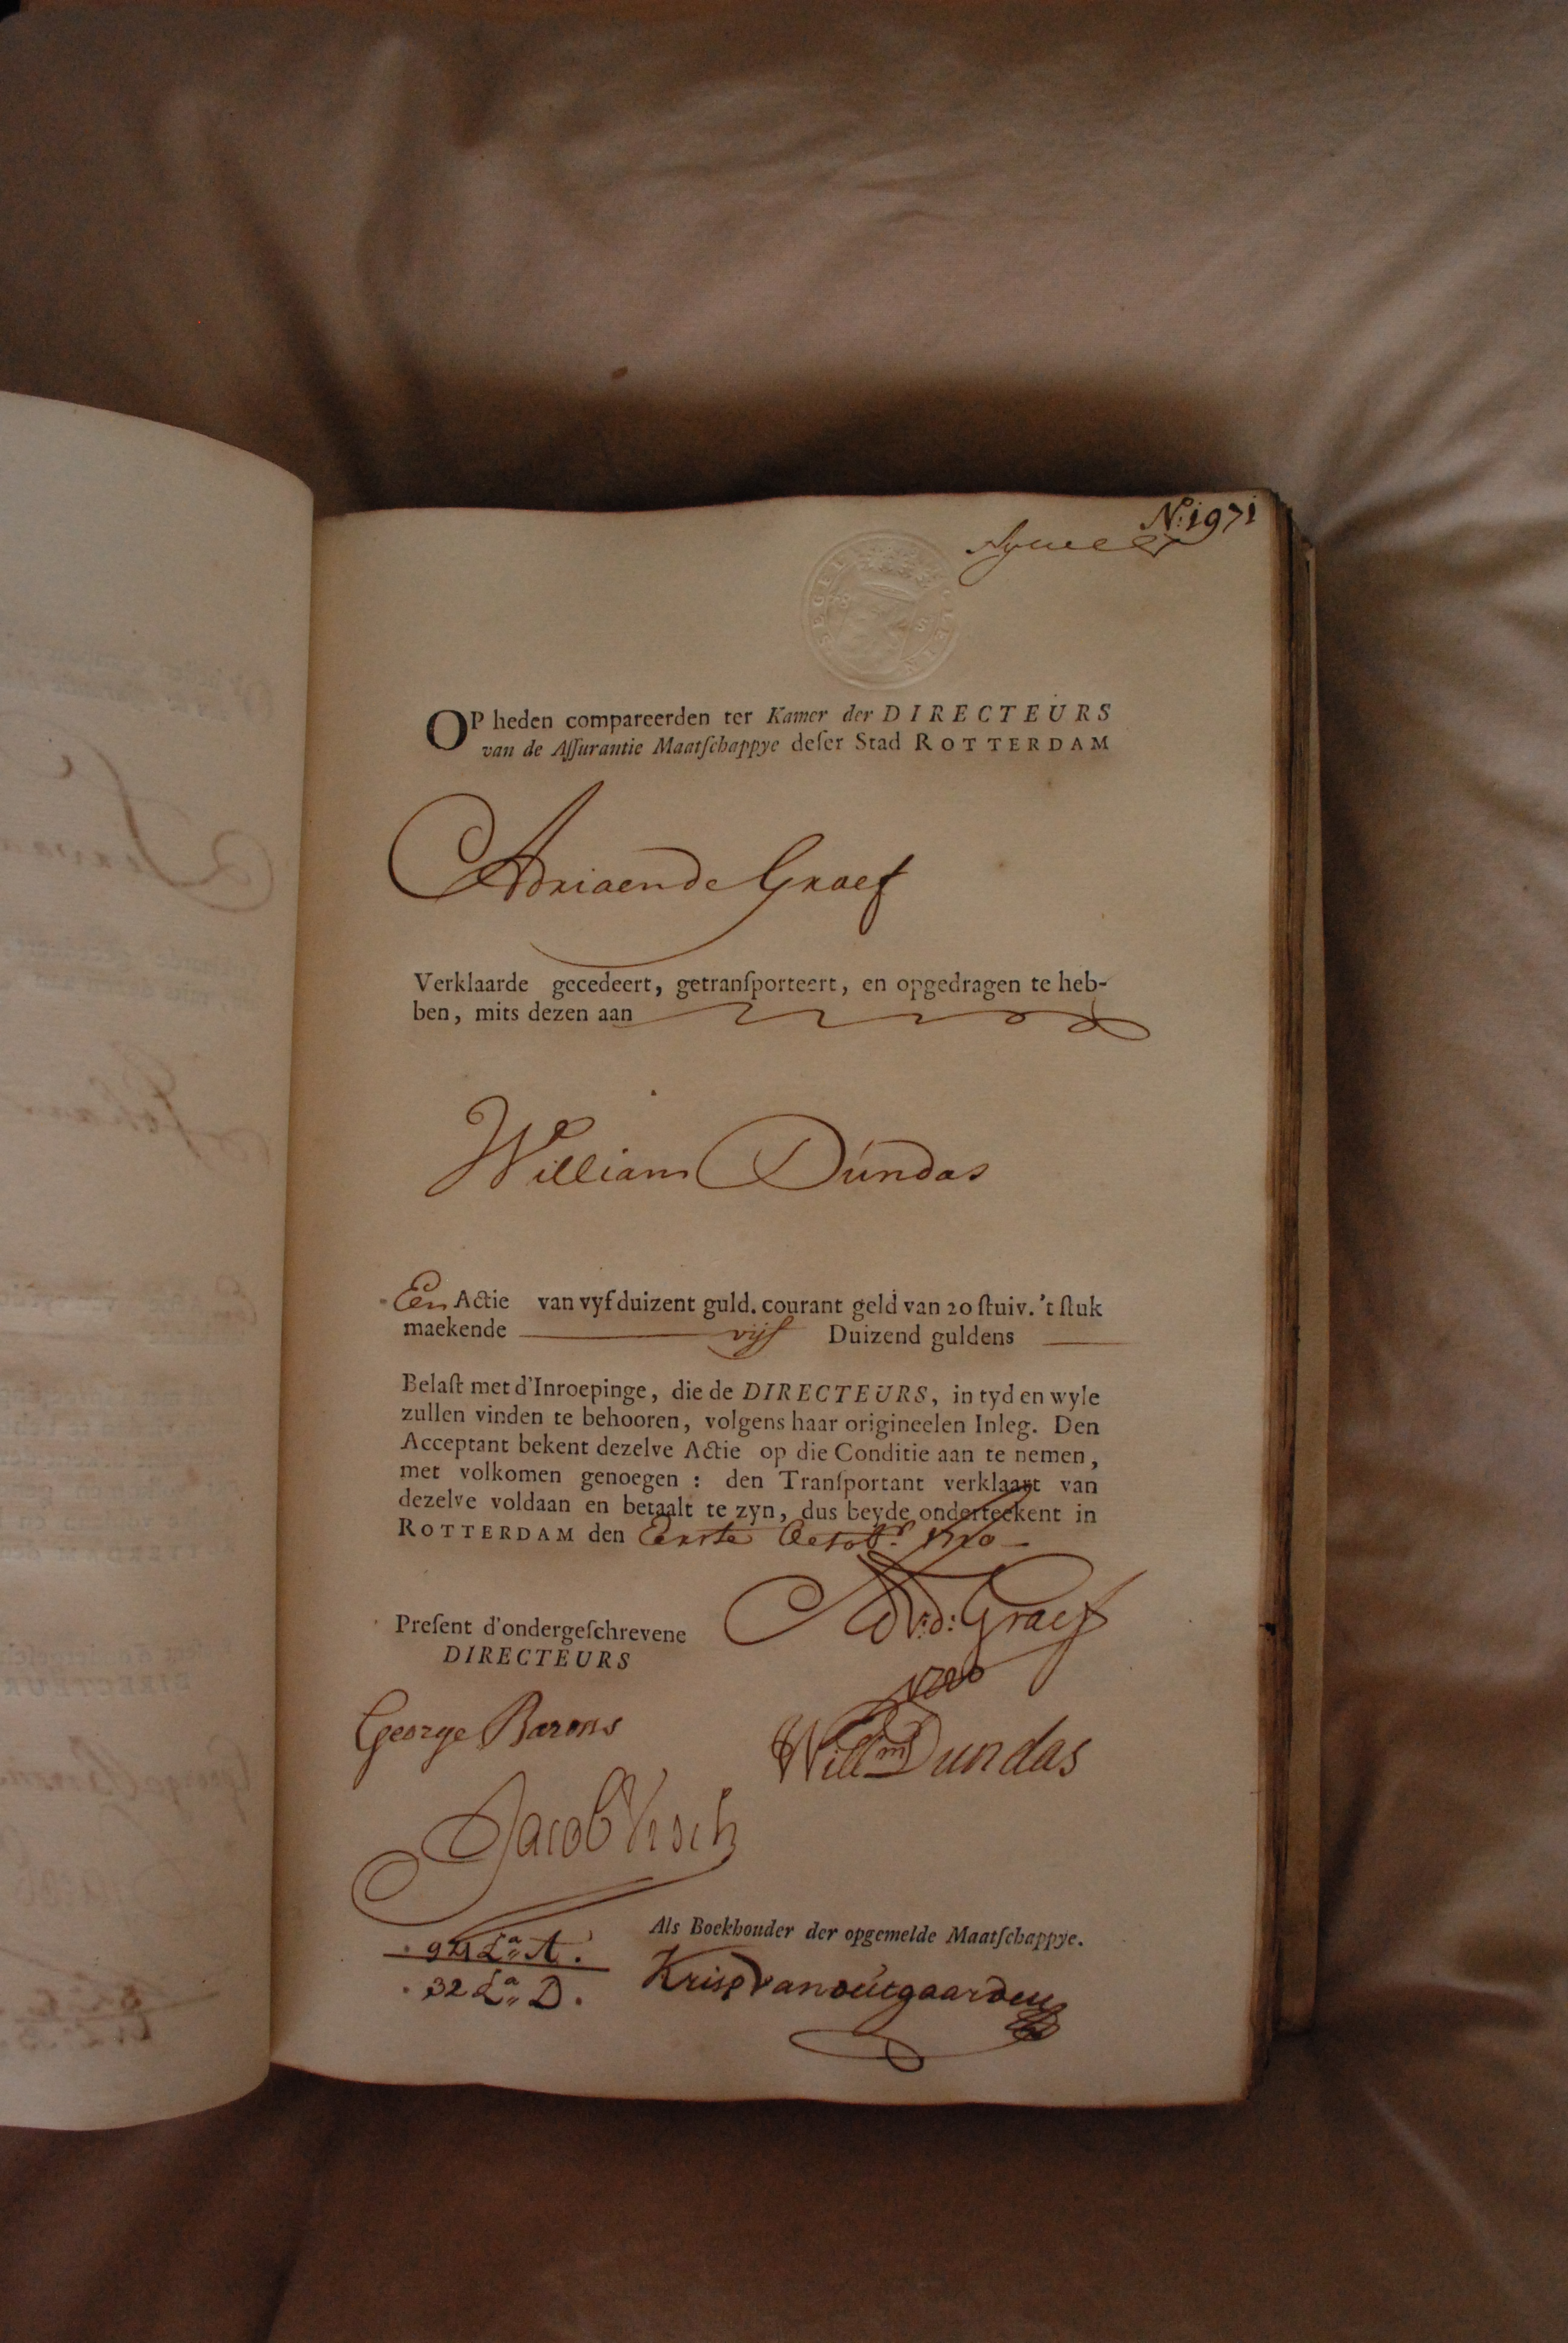 N: 1971
OP heden compareerden ter Kamer der DIRECTEURS
van de Aſſurantie Maatſchappye deſer Stad ROTTERDAM
Adriaen de Graef
Verklaarde gecedeert, getranſporteert, en opgedragen te heb-
ben, mits dezen aan
William Dúndas
Een Actie van vyf duizent guld. courant geld van 20 ſtuiv. 't ſtuk
maekende vijf Duizend guldens
Belaſt met d'Inroepinge, die de DIRECTEURS, in tyd en wyle
zullen vinden te behooren, volgens haar origineelen Inleg. Den
Acceptant bekent dezelve Actie op die Conditie aan te nemen,
met volkomen genoegen : den Tranſportant verklaart van
dezelve voldaan en betaalt te zyn, dus beyde onderteekent in
ROTTERDAM den Eerste Octobr. 1720
Preſent d'ondergeſchrevene
DIRECTEURS
Ad: d: Graef
1720
George Barons
Willm Dundas
Jacob Visch
Als Boekhouder der opgemelde Maatſchappye.
La A.
32 La D.
Krisp van outgaarden